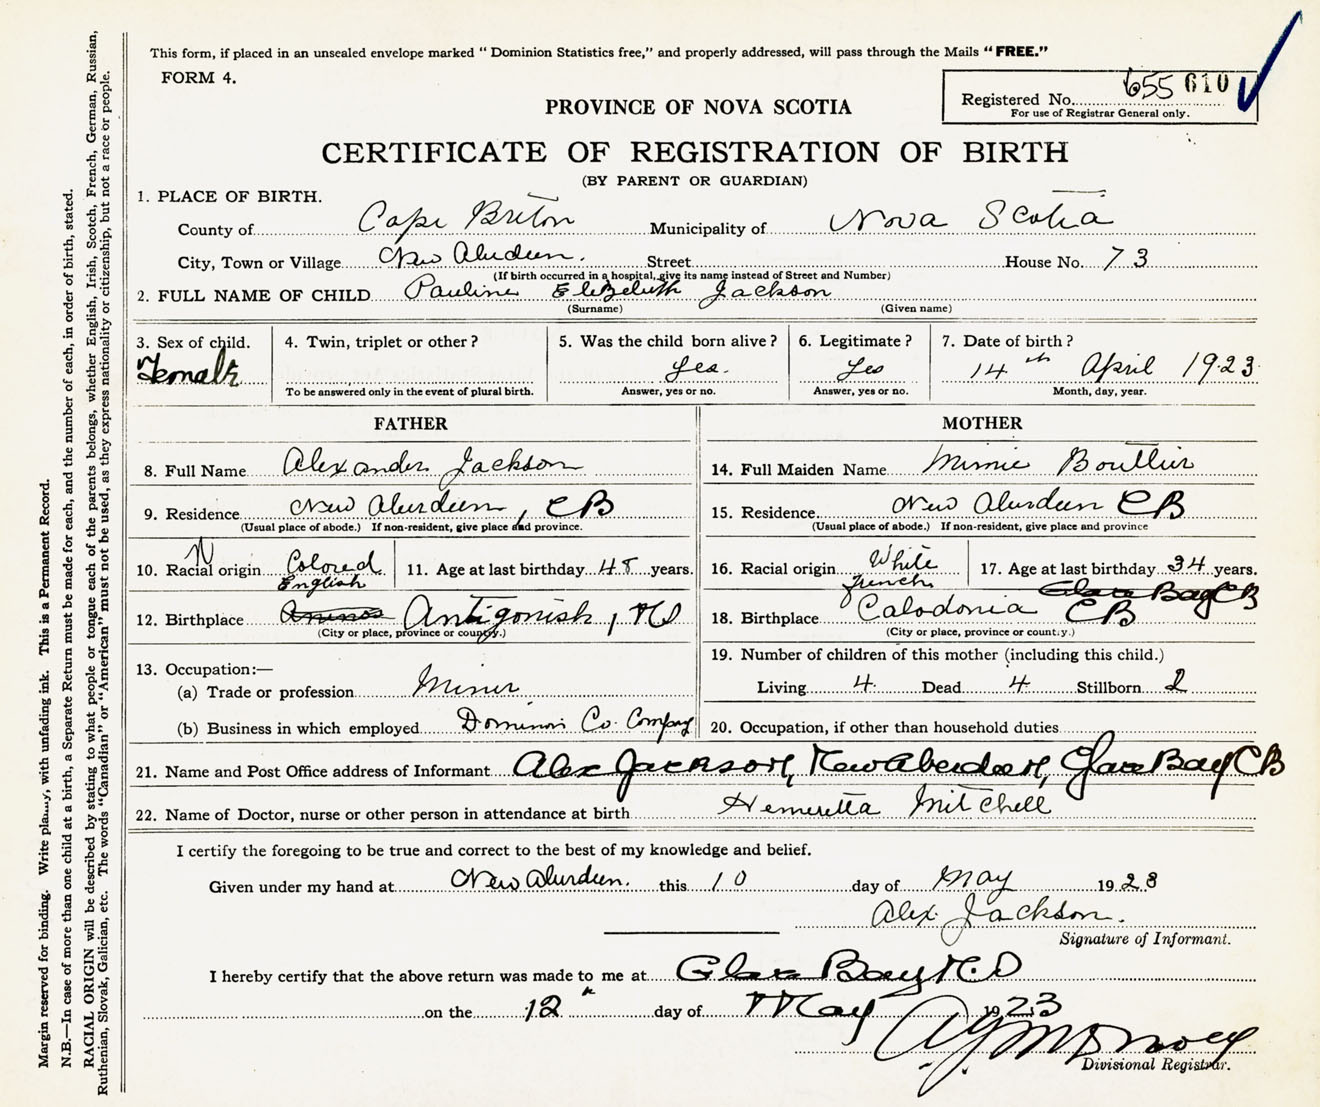 This form, if placed in an unsealed envelope marked "Dominion Statistics free," and properly addressed, will pass through the Mails "FREE."
FORM 4.
Registered No. 655 610
For use of Registrar General only.
PROVINCE OF NOVA SCOTIA
CERTIFICATE OF REGISTRATION OF BIRTH
(BY PARENT OR GUARDIAN)
1. PLACE OF BIRTH.
County of Cape Briton Municipality of Nova Scotia
City, Town or Village New Aberdeen. Street House No. 73
(If birth occurred in a hospital, give its name instead of Street and Number)
2. FULL NAME OF CHILD Pauline Elizebeth Jackson
(Surname) (Given name)
3. Sex of child. 4. Twin, triplet or other? 5. Was the child born alive? 6. Legitimate? 7. Date of birth?
Female yes. yes 14th April 1923
To be answered only in the event of plural birth. Answer, yes or no. Answer, yes or no. Month, day, year.
FATHER MOTHER
8. Full Name Alexander Jackson 14. Full Maiden Name Minnie Boutlier
9. Residence New Aberdeen, CB 15. Residence New Aberdeen CB
(Usual place of abode.) If non-resident, give place and province. (Usual place of abode.) If non-resident, give place and province
10. Racial origin N Colored 11. Age at last birthday 48 years. 16. Racial origin White 17. Age at last birthday 34 years.
English French Glace Bay CB
12. Birthplace Antigonish, NS 18. Birthplace Caledonia CB
(City or place, province or country.) (City or place, province or country.)
13. Occupation:— 19. Number of children of this mother (including this child.)
(a) Trade or profession Miner Living 4 Dead 4 Stillborn 2
(b) Business in which employed Dominion Co. Company 20. Occupation, if other than household duties
21. Name and Post Office address of Informant Alex Jackson, New Aberdeen, Glace Bay CB
22. Name of Doctor, nurse or other person in attendance at birth Henrietta Mitchell
I certify the foregoing to be true and correct to the best of my knowledge and belief.
Given under my hand at New Aberdeen. this 10 day of May 1923
Alex Jackson.
Signature of Informant.
I hereby certify that the above return was made to me at Glace Bay N.S
on the 12th day of May 1923
Divisional Registrar.
Margin reserved for binding. Write plainly, with unfading ink. This is a Permanent Record.
N.B.—In case of more than one child at a birth, a Separate Return must be made for each, and the number of each, in order of birth, stated.
RACIAL ORIGIN will be described by stating to what people or tongue each of the parents belongs, whether English, Irish, Scotch, French, German, Russian,
Ruthenian, Slovak, Galician, etc. The words "Canadian" or "American" must not be used, as they express nationality or citizenship, but not a race or people.